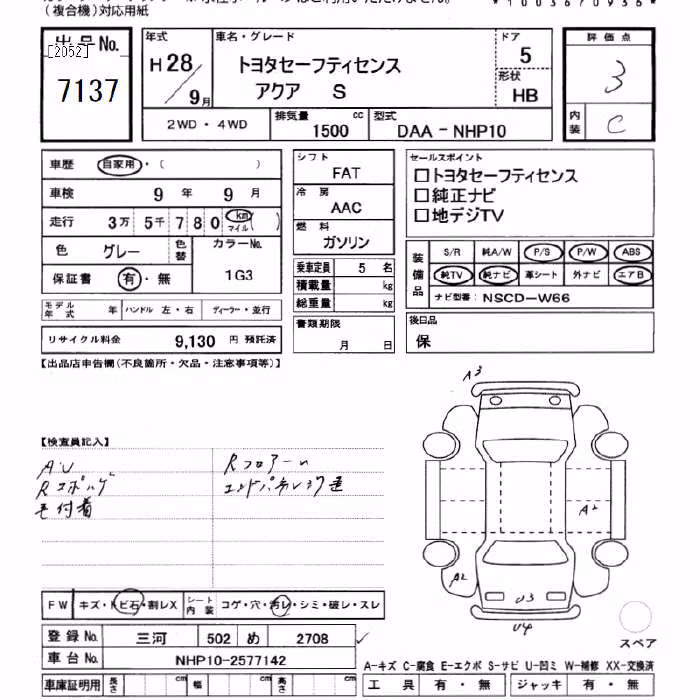 (複合機)対応用紙
*1003670936*
出品No.
[2052]
7137
年式
H28/9月
車名・グレード
トヨタセーフティセンス
アクア S
ドア
5
形状
HB
評価点
3
内装
C
2WD・4WD
排気量
1500 cc
型式
DAA-NHP10
車歴 自家用・( )
車検 9年 9月
走行 3万 5千 7 8 0 km マイル ( )
色 グレー 色替
カラーNo.
1G3
保証書 有・無
モデル年式 年 ハンドル 左・右 ディーラー・並行
リサイクル料金 9,130 円 預託済
シフト
FAT
冷房
AAC
燃料
ガソリン
乗車定員 5 名
積載量 kg
総重量 kg
書類期限
月 日
セールスポイント
□トヨタセーフティセンス
□純正ナビ
□地デジTV
装備品
S/R 純A/W P/S P/W ABS
純TV 純ナビ 革シート 外ナビ エアB
ナビ型番: NSCD-W66
後日品
保
【出品店申告欄(不良箇所・欠品・注意事項等)】
【検査員記入】
AU
Rフロアー
毛付着
A3
A2
A2
U3
U4
FW キズ・トビ石・割レX
シート内装 コゲ・穴・汚レ・シミ・破レ・スレ
登録No. 三河 502 め 2708
車台No. NHP10-2577142
車庫証明用 長さ cm 幅 cm 高さ cm
スペア
A-キズ C-腐食 E-エクボ S-サビ U-凹ミ W-補修 XX-交換済
工具 有・無 ジャッキ 有・無